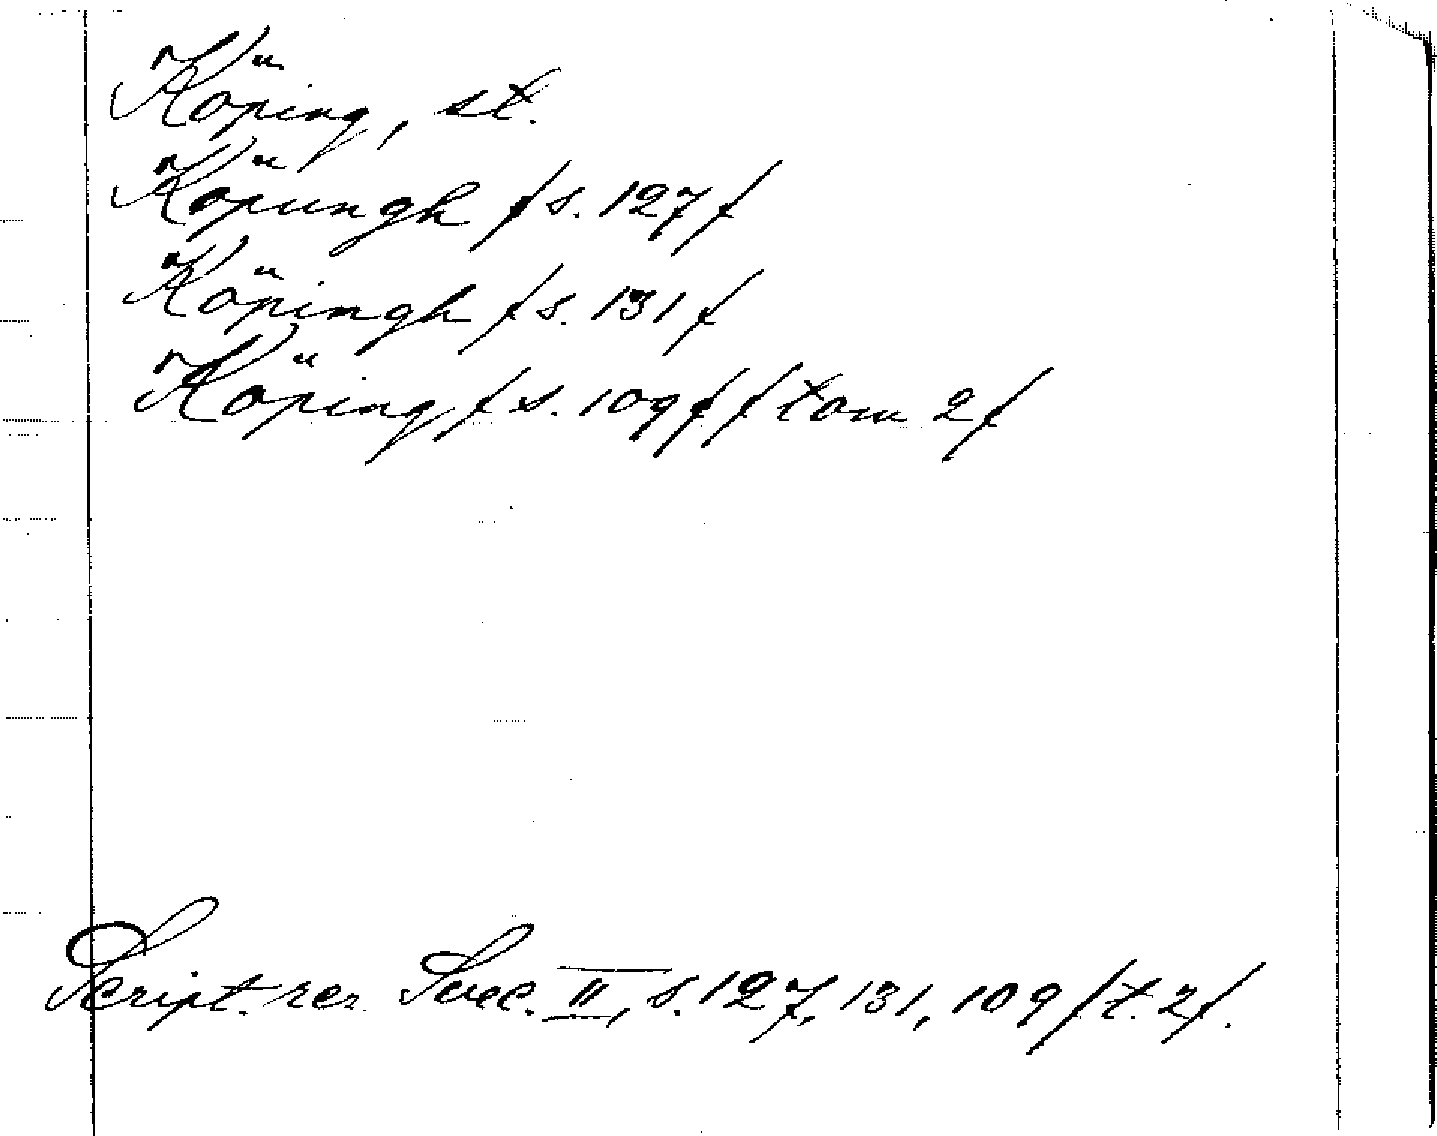 Köping, st.
Köpungh /s. 127/
Köpingh /s. 131/
Köping /s. 109/ /tom 2/
Script. rer. Svec. II, s. 127, 131, 109 /t. 2/.